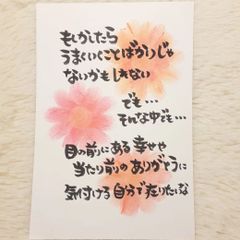 もしかしたら
うまくいくことばかりじゃ
ないかもしれない
でも…
そんな中でも…
目の前にある幸せや
当たり前のありがとうに
気付ける自分で在りたいな